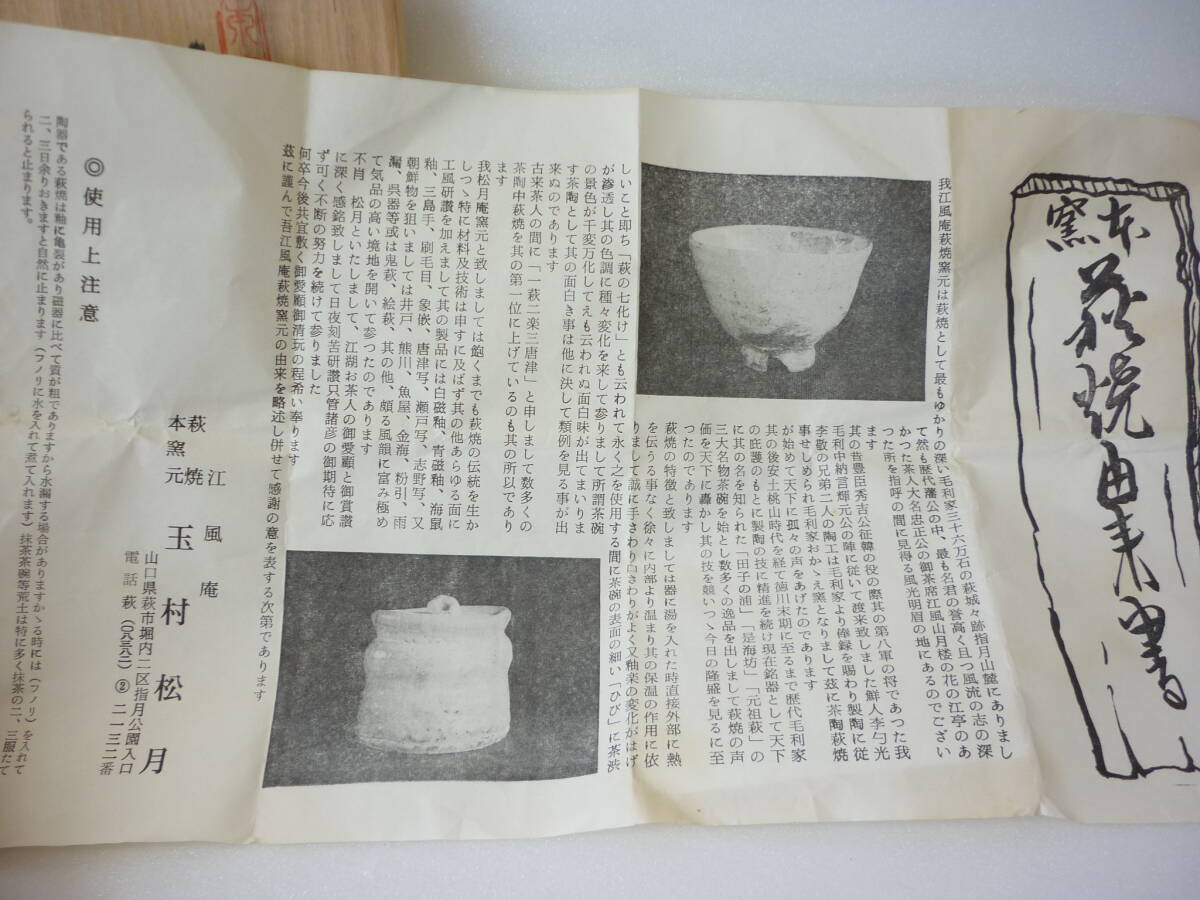 本窯
萩焼由来書
我江風庵萩焼窯元は萩焼として最もゆかりの深い毛利家三十六万石の萩城々跡指月山麓にありまし
て然も歴代藩公の中、最も名君の誉高く且つ風流の志の深
かつた茶人大名忠正公の御茶席江風山月楼の花の江亭のあ
つた所を指呼の間に見得る風光明眉の地にあるのでござい
ます
其の昔豊臣秀吉公征韓の役の際其の第八軍の将であつた我
毛利中納言輝元公の陣に従いて渡来致しました鮮人李勺光
李敬の兄弟二人の陶工は毛利家より俸録を賜わり製陶に従
事せしめられ毛利家おかゝえ窯となりまして茲に茶陶萩焼
が始めて天下に孤々の声をあげたのであります
其の後安土桃山時代を経て徳川末期に至るまで歴代毛利家
の庇護のもとに製陶の技に精進を続け現在銘器として天下
に其の名を知られた「田子の浦」「是海坊」「元祖萩」の
三大名物茶碗を始とし数多くの逸品を出しまして萩焼の声
価を天下に轟かし其の技を競いつゝ今日の隆盛を見るに至
つたのであります
萩焼の特徴と致しましては器に湯を入れた時直接外部に熱
を伝うる事なく徐々に内部より温まり其の保温の作用に依
りまして誠に手さわり口さわりがよく又釉楽の変化がはげ
しいこと即ち「萩の七化け」とも云われて永く之を使用する間に茶碗の表面の細い「ひび」に茶渋
が滲透し其の色調に種々変化を来して参りまして所謂茶碗
の景色が千変万化してえも云われぬ面白味が出てまいりま
す茶陶として其の面白き事は他に決して類例を見る事が出
来ぬのであります
古来茶人の間に「一萩二楽三唐津」と申しまして数多くの
茶陶中萩焼を其の第一位に上げているのも其の所以であり
ます
我松月庵窯元と致しましては飽くまでも萩焼の伝統を生か
しつゝ特に材料及技術は申すに及ばず其の他あらゆる面に
工風研讃を加えまして其の製品には白磁釉、青磁釉、海鼠
釉、三島手、刷毛目、象嵌、唐津写、瀬戸写、志野写、又
朝鮮物を狙いましては井戸、熊川、魚屋、金海、粉引、雨
漏、呉器等或は鬼萩、絵萩、其の他、頗る風韻に富み極め
て気品の高い境地を開いて参つたのであります
不肖 松月といたしまして、江湖お茶人の御愛顧と御賞讃
に深く感銘致しまして日夜刻苦研讃只管諸彦の御期待に応
ず可く不断の努力を続けて参りました
何卒今後共宜敷く御愛顧御清玩の程希い奉ります
茲に謹んで吾江風庵萩焼窯元の由来を略述し併せて感謝の意を表する次第であります
江風庵
萩焼
本窯元
玉村松月
山口県萩市堀内二区指月公園入口
電話萩(〇八三八二)②二一三二番
◎使用上注意
陶器である萩焼は釉に亀裂があり磁器に比べて質が粗でありますから水漏する場合がありますかゝる時には(フノリ)を入れて
二、三日余りおきますと自然に止まります(フノリに水を入れて煮て入れます)抹茶茶碗等荒土は特に多く抹茶の二、三服たて
られると止まります。